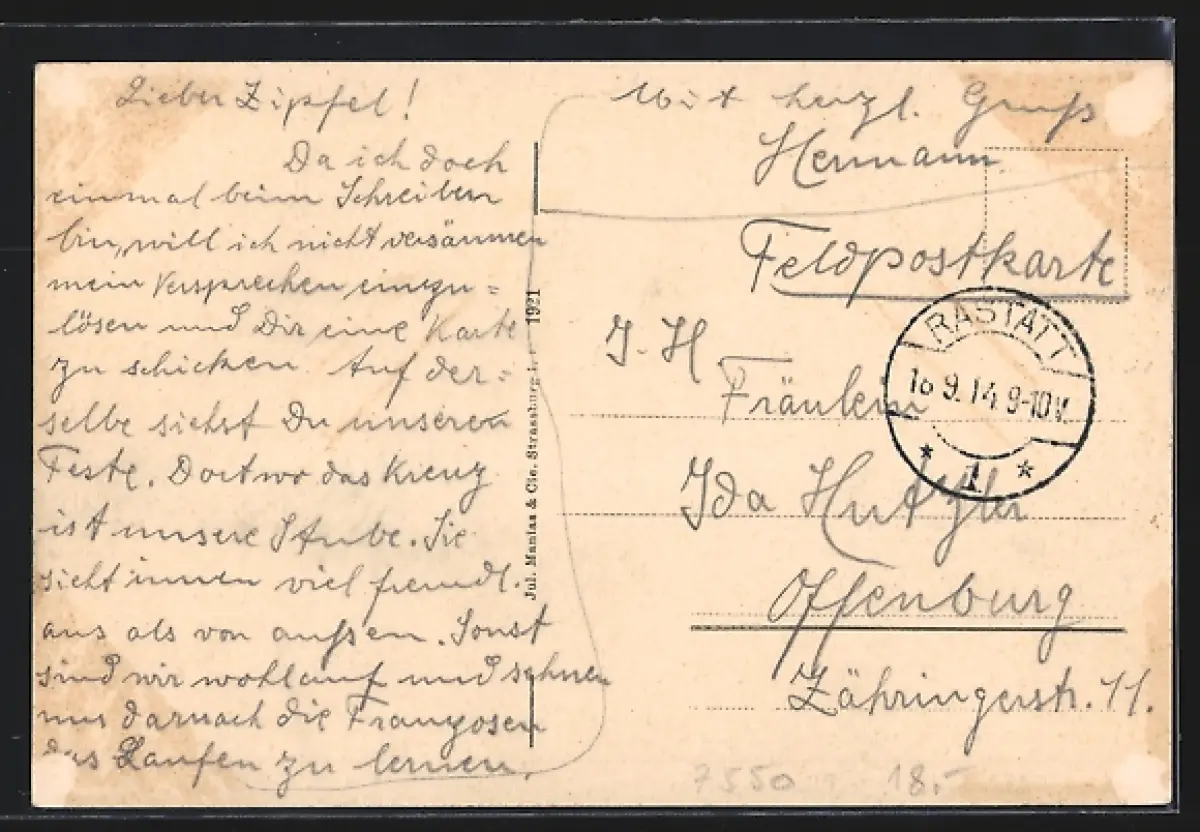 Lieber Zipfel!
Da ich doch
einmal beim Schreiben
bin, will ich nicht versäumen
mein Versprechen einzu=
lösen und Dir eine Karte
zu schicken. Auf der=
selbe siehst Du unseren
Feste. Dort wo das Kreuz
ist unsere Stube. Sie
sieht innen viel freundl.
aus als von außen. Sonst
sind wir wohlauf und sehnen
uns darnach die Franzosen
das Laufen zu lernen.
Mit herzl. Gruß
Hermann
Feldpostkarte
RASTATT
16 9.14 9-10 V.
* 1 *
J. H
Fräulein
Ida Hutzler
Offenburg
Zähringerstr. 11.
Jul. Manias & Cie. Strassburg i. 1921
7550 18.-